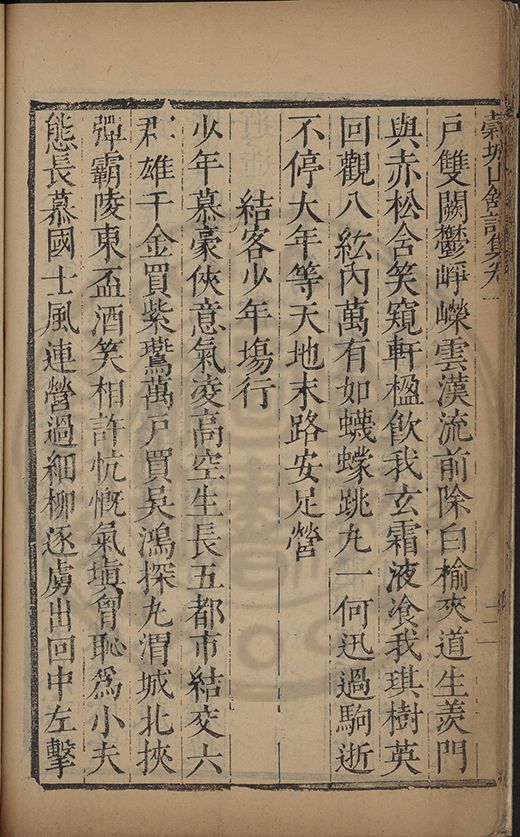 穀城山館詩集卷一
戶雙闕鬱崢嶸雲漢流前除白榆夾道生羨門
與赤松含笑窺軒楹飲我玄霜液飡我琪樹英
回觀八紘內萬有如蠛蠓跳丸一何迅過駒逝
不停大年等天地末路安足營
結客少年塲行
少年慕豪俠意氣凌高空生長五都市結交六
郡雄千金買紫鷰萬戶買吳鴻探丸渭城北挾
彈霸陵東盃酒笑相許忼慨氣塡胷恥爲小夫
態長慕國士風連營過細柳逐虜出回中左擊